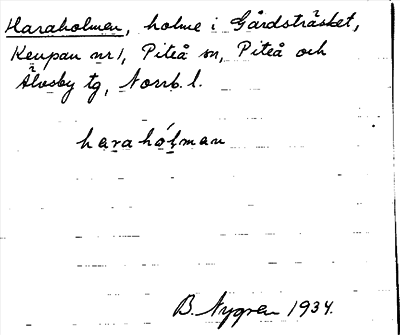 Haraholmen, holme i Gårdsträsket,
Keupan nr 1, Piteå sn, Piteå och
Älvsby tg, Norrb. l.
haraholman
B. Nygren 1934.